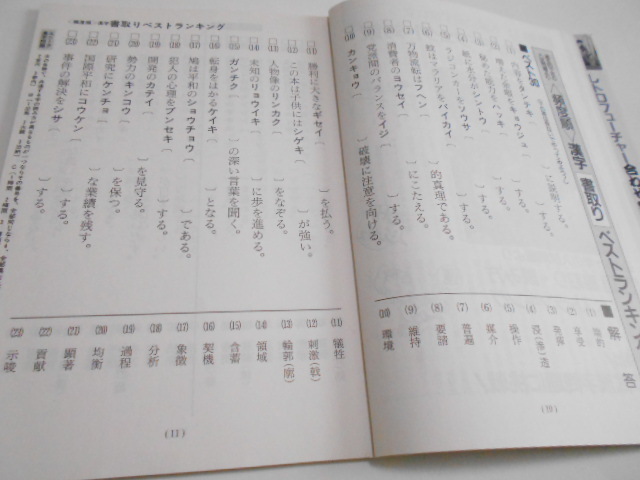 レトロフューチャー
頻度順/漢字 書取りベストランキング
■ベスト50
■解答
(1) 内容をタンテキ〔　〕に説明する。
(4) 紙に水がシントウ〔　〕する。
(5) ラジコンカーをソウサ〔　〕する。
(6) 蚊はマラリアをバイカイ〔　〕する。
(7) 万物流転はフヘン〔　〕的真理である。
(8) 消費者のヨウセイ〔　〕にこたえる。
(9) 党派間のバランスをイジ〔　〕する。
(10) カンキョウ〔　〕破壊に注意を向ける。
(1) 端的
(2) 享受
(3) 発揮
(4) 浸(滲)透
(5) 操作
(6) 媒介
(7) 普遍
(8) 要請
(9) 維持
(10) 環境
(10)
書取りベストランキング
(11) 勝利に大きなギセイ〔　〕を払う。
(12) この本は子供にはシゲキ〔　〕が強い。
(13) 人物像のリンカク〔　〕をなぞる。
(14) 未知のリョウイキ〔　〕に歩を進める。
(15) ガンチク〔　〕の深い言葉を聞く。
(16) 転身をはかるケイキ〔　〕となる。
(17) 鳩は平和のショウチョウ〔　〕である。
(18) 犯人の心理をブンセキ〔　〕する。
(19) 開発のカテイ〔　〕を見守る。
(20) 勢力のキンコウ〔　〕を保つ。
(21) 研究にケンチョ〔　〕な業績を残す。
(22) 国際平和にコウケン〔　〕する。
(23) 事件の解決をシサ〔　〕する。
(11) 犠牲
(12) 刺激(戟)
(13) 輪郭(廓)
(14) 領域
(15) 含蓄
(16) 契機
(17) 象徴
(18) 分析
(19) 過程
(20) 均衡
(21) 顕著
(22) 貢献
(23) 示唆
(11)